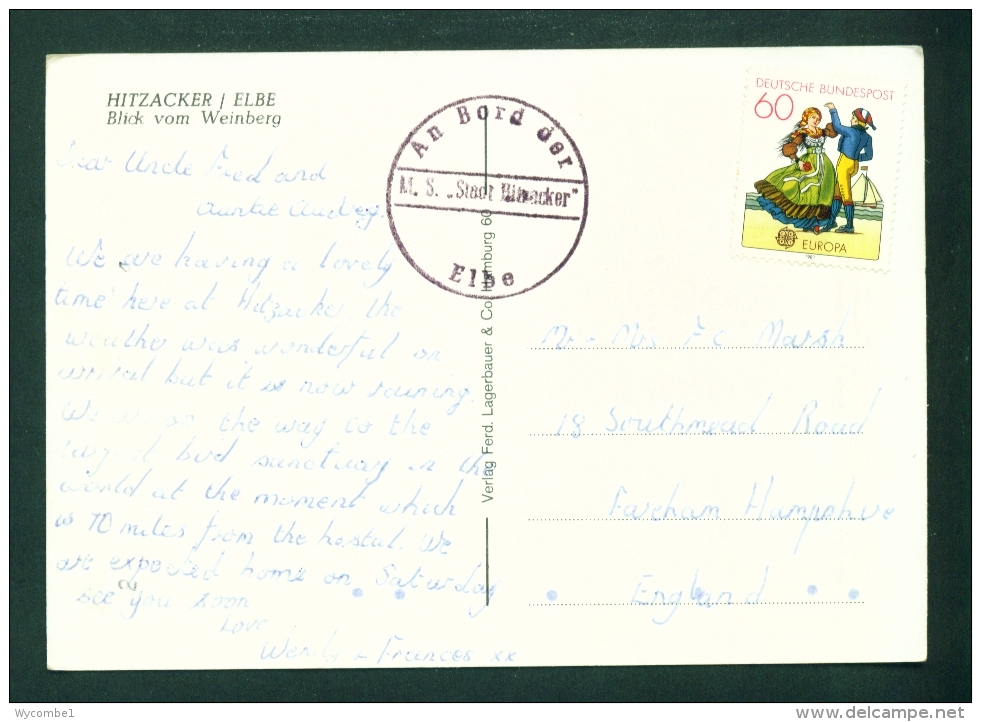 HITZACKER / ELBE
Blick vom Weinberg
Dear Uncle Fred and
Auntie Audrey,
We are having a lovely
time here at Hitzacker, the
weather was wonderful on
arrival but it is now raining.
We are on the way to the
largest bird sanctuary in the
world at the moment which
is 70 miles from the hostal. We
are expected home on Saturday
see you soon
Love
Wendy + Frances xx
An Bord der
M. S. „Stadt Hitzacker"
Elbe
Verlag Ferd. Lagerbauer & Co. Hamburg 60
DEUTSCHE BUNDESPOST
60
EUROPA
1981
Mr - Mrs F C Marsh
18 Southmead Road
Fareham Hampshire
England
Wycombe1
delcampe.net